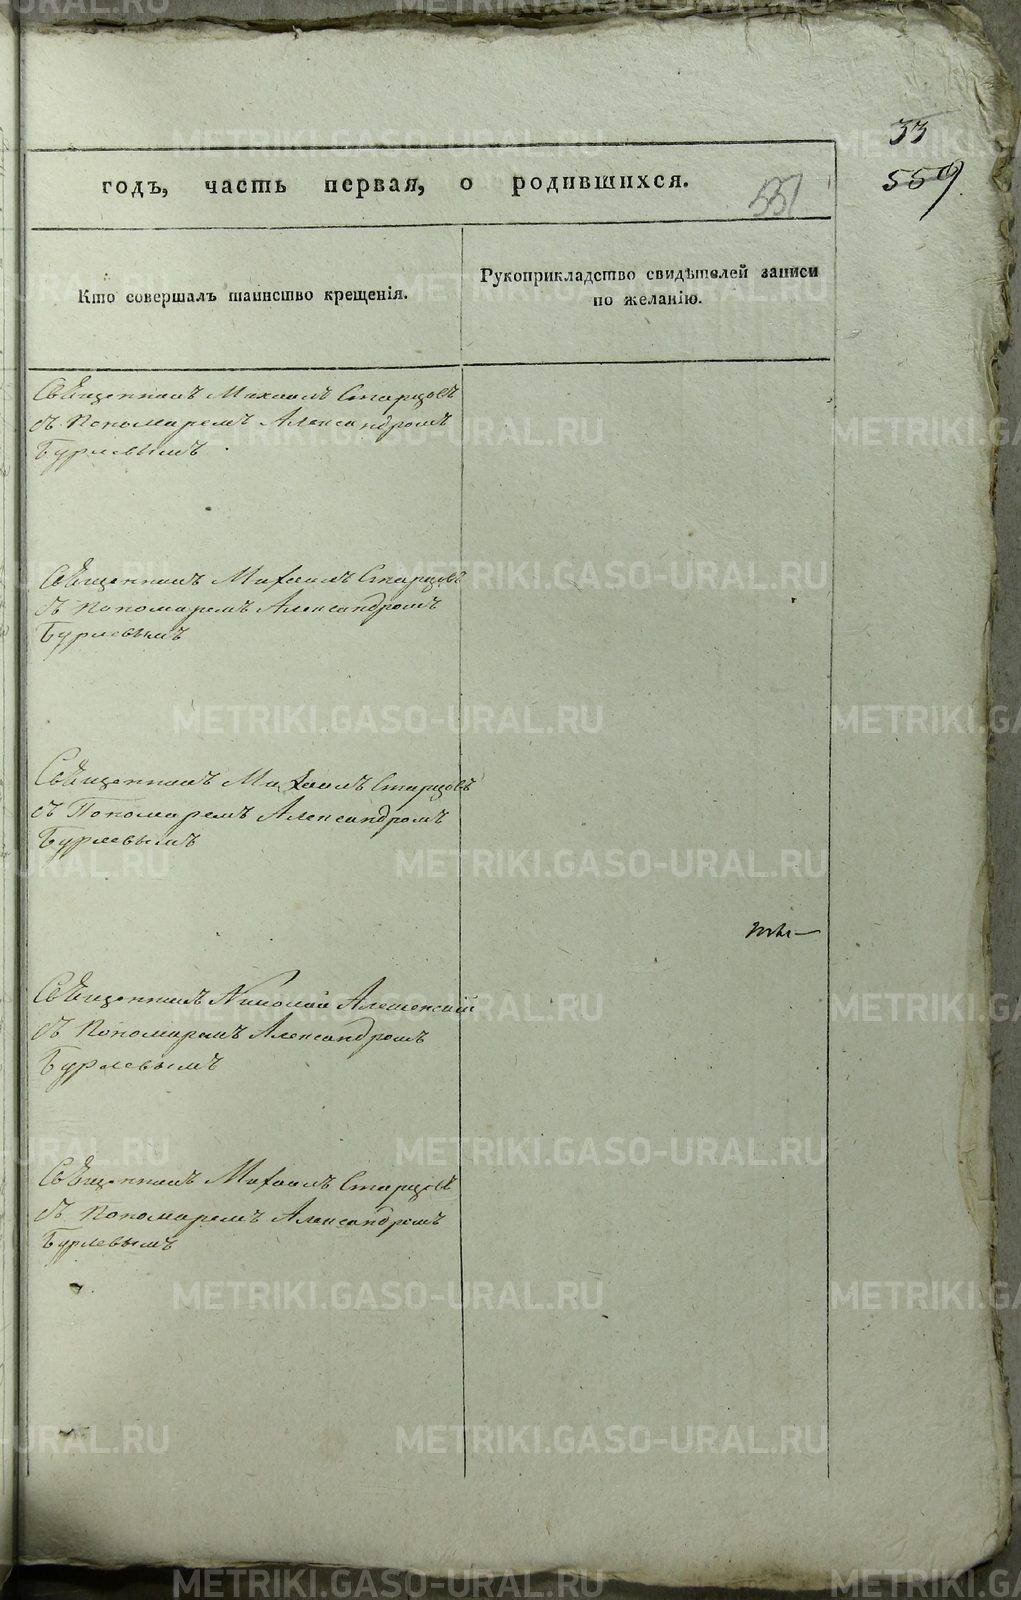 33
559
годъ, часть первая, о родившихся.
551
Кто совершалъ таинство крещенія.
Рукоприкладство свидѣтелей записи
по желанію.
Священникъ Михаилъ Старцовъ
съ Пономаремъ Александромъ
Бурлевымъ
Священникъ Михаилъ Старцовъ
съ Пономаремъ Александромъ
Бурлевымъ
Священникъ Михаилъ Старцовъ
съ Пономаремъ Александромъ
Бурлевымъ
Священникъ Николай
съ Пономаремъ Александромъ
Бурлевымъ
Священникъ Михаилъ Старцовъ
съ Пономаремъ Александромъ
Бурлевымъ
METRIKI.GASO-URAL.RU